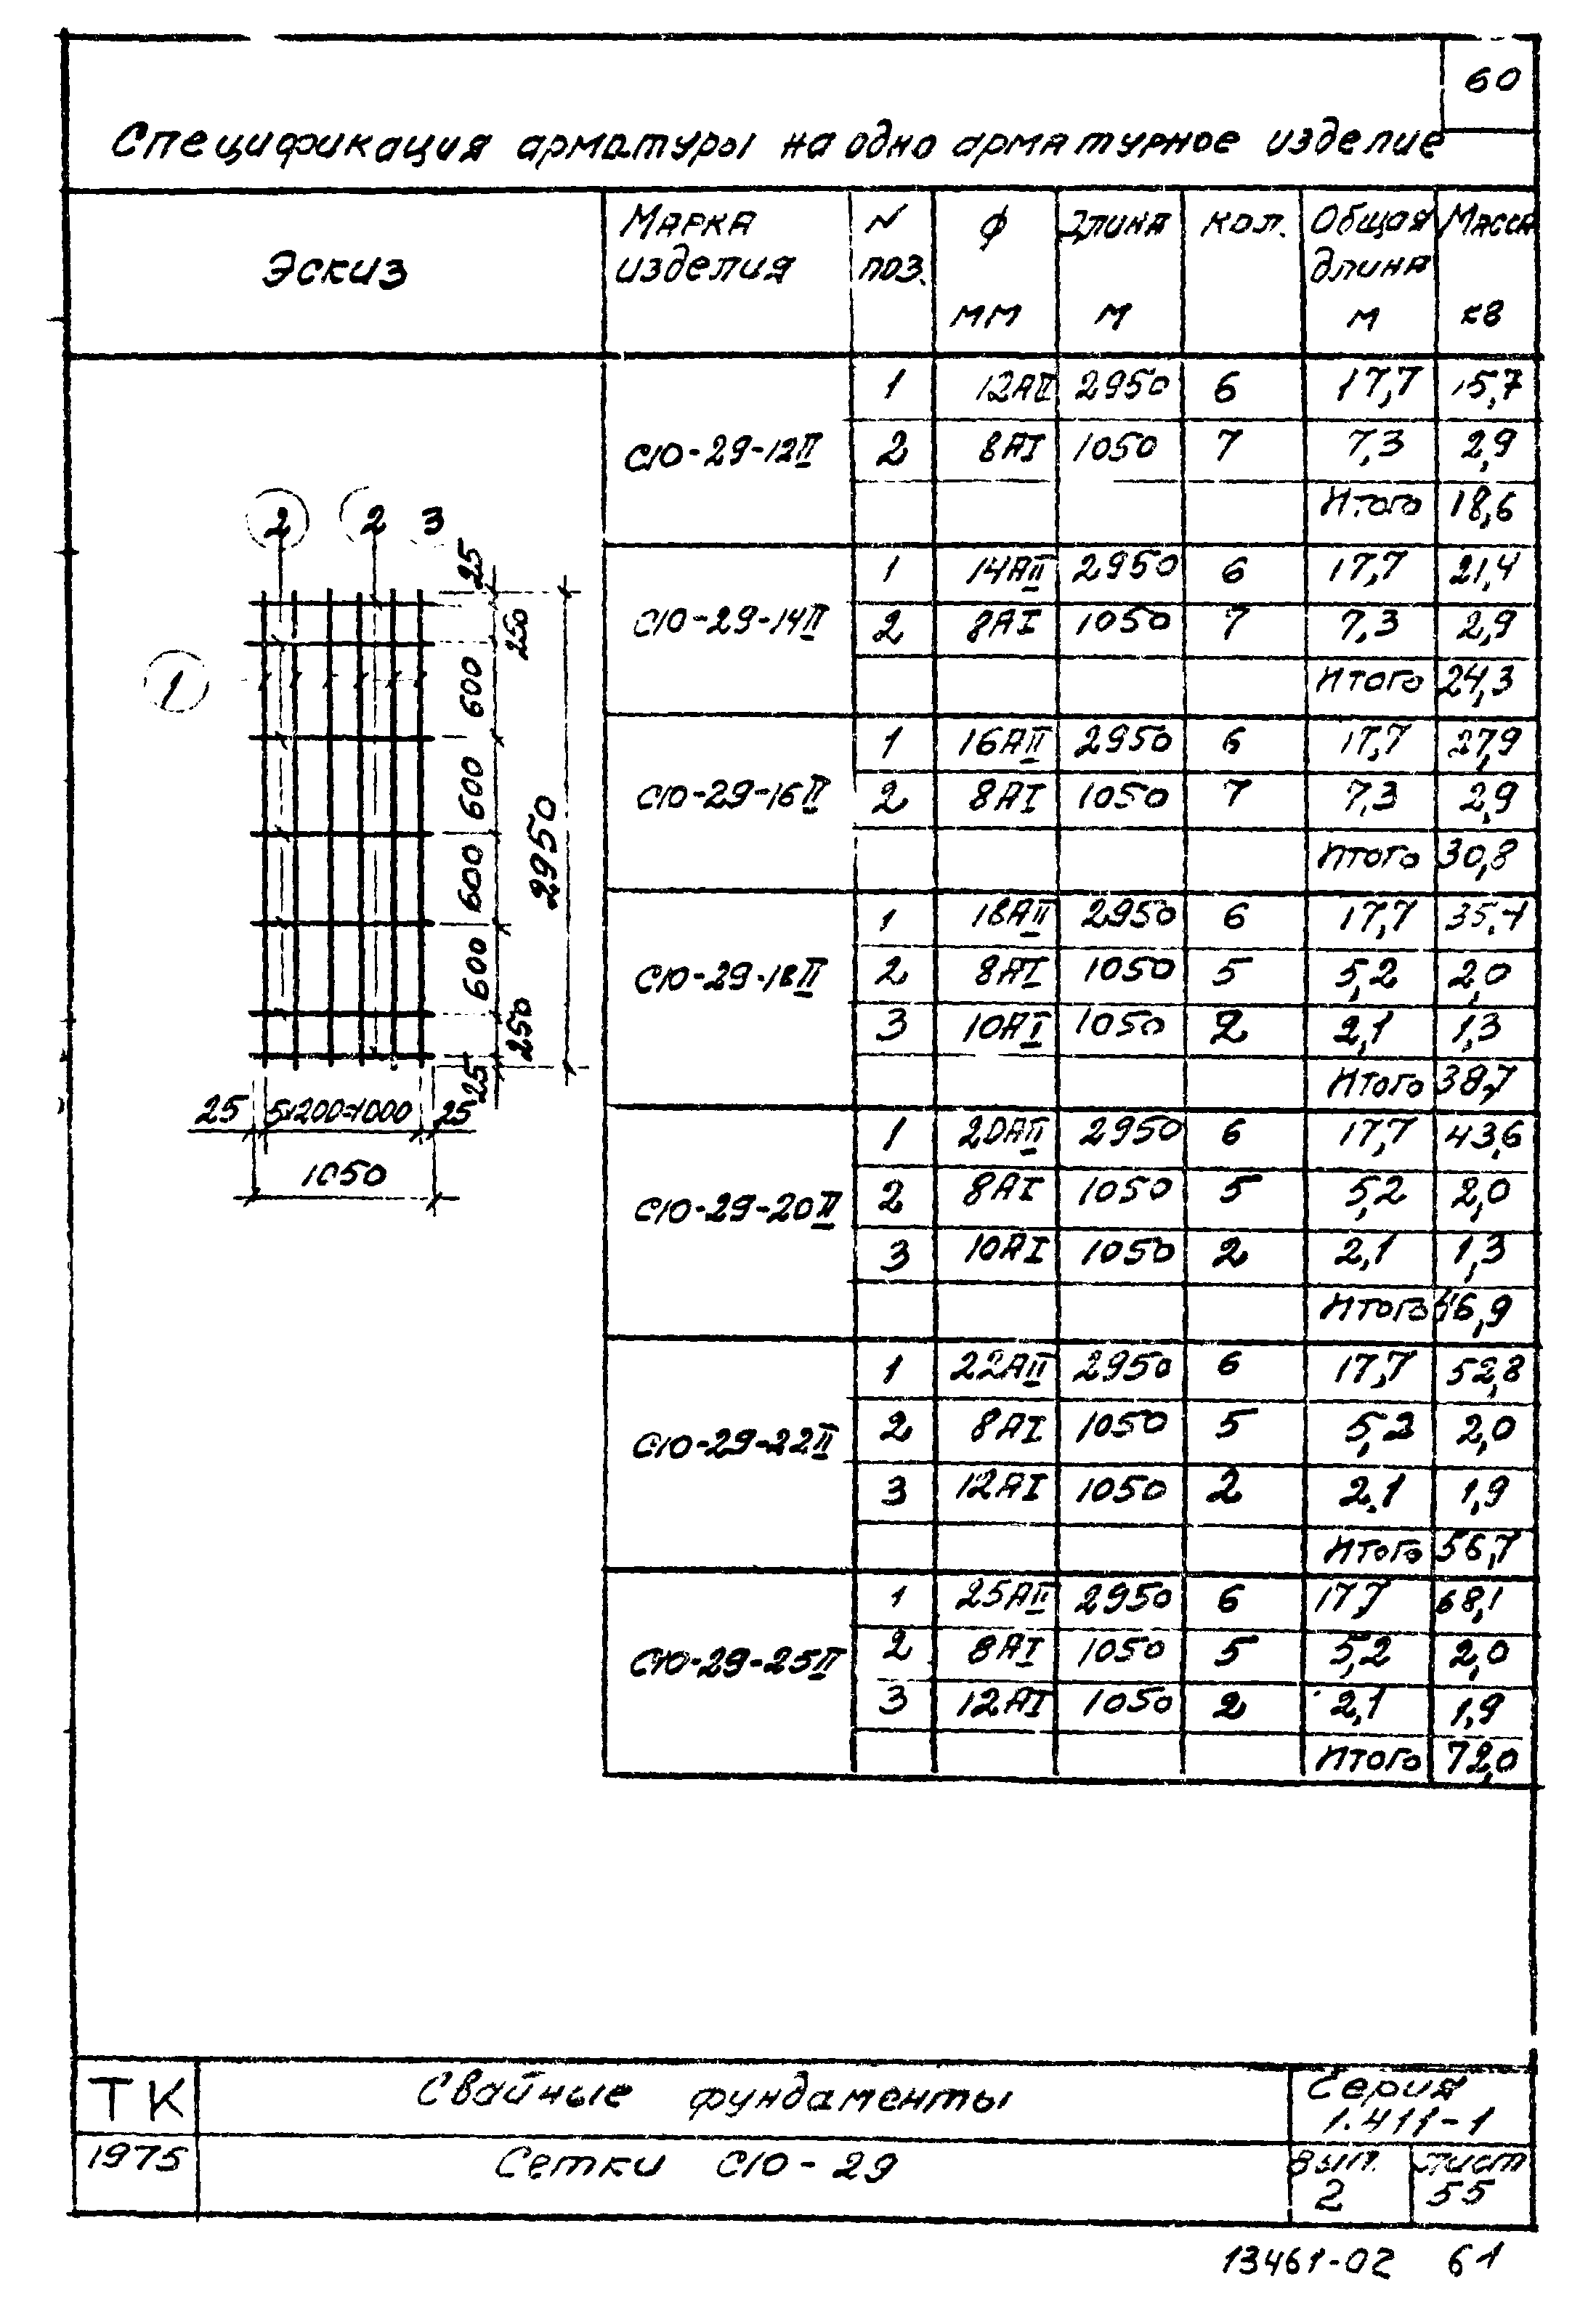 60
Спецификация арматуры на одно арматурное изделие
Эскиз
Марка изделия
N поз.
ф мм
Длина м
кол.
Общая длина м
Масса кг
С10-29-12II
1 12АII 2950 6 17,7 15,7
2 8АI 1050 7 7,3 2,9
Итого 18,6
С10-29-14II
1 14АII 2950 6 17,7 21,4
2 8АI 1050 7 7,3 2,9
Итого 24,3
С10-29-16II
1 16АII 2950 6 17,7 27,9
2 8АI 1050 7 7,3 2,9
Итого 30,8
С10-29-18II
1 18АII 2950 6 17,7 35,4
2 8АI 1050 5 5,2 2,0
3 10АI 1050 2 2,1 1,3
Итого 38,7
С10-29-20II
1 20АII 2950 6 17,7 43,6
2 8АI 1050 5 5,2 2,0
3 10АI 1050 2 2,1 1,3
Итого 46,9
С10-29-22II
1 22АII 2950 6 17,7 52,8
2 8АI 1050 5 5,2 2,0
3 12АI 1050 2 2,1 1,9
Итого 56,7
С10-29-25II
1 25АII 2950 6 17,7 68,1
2 8АI 1050 5 5,2 2,0
3 12АI 1050 2 2,1 1,9
Итого 72,0
2 2 3
1
25
250
600
600
600
600
250
25
2950
25 5x200=1000 25
1050
ТК
1975
Свайные фундаменты
Сетки С10-29
Серия
1.411-1
вып. 2
лист 55
13461-02 61